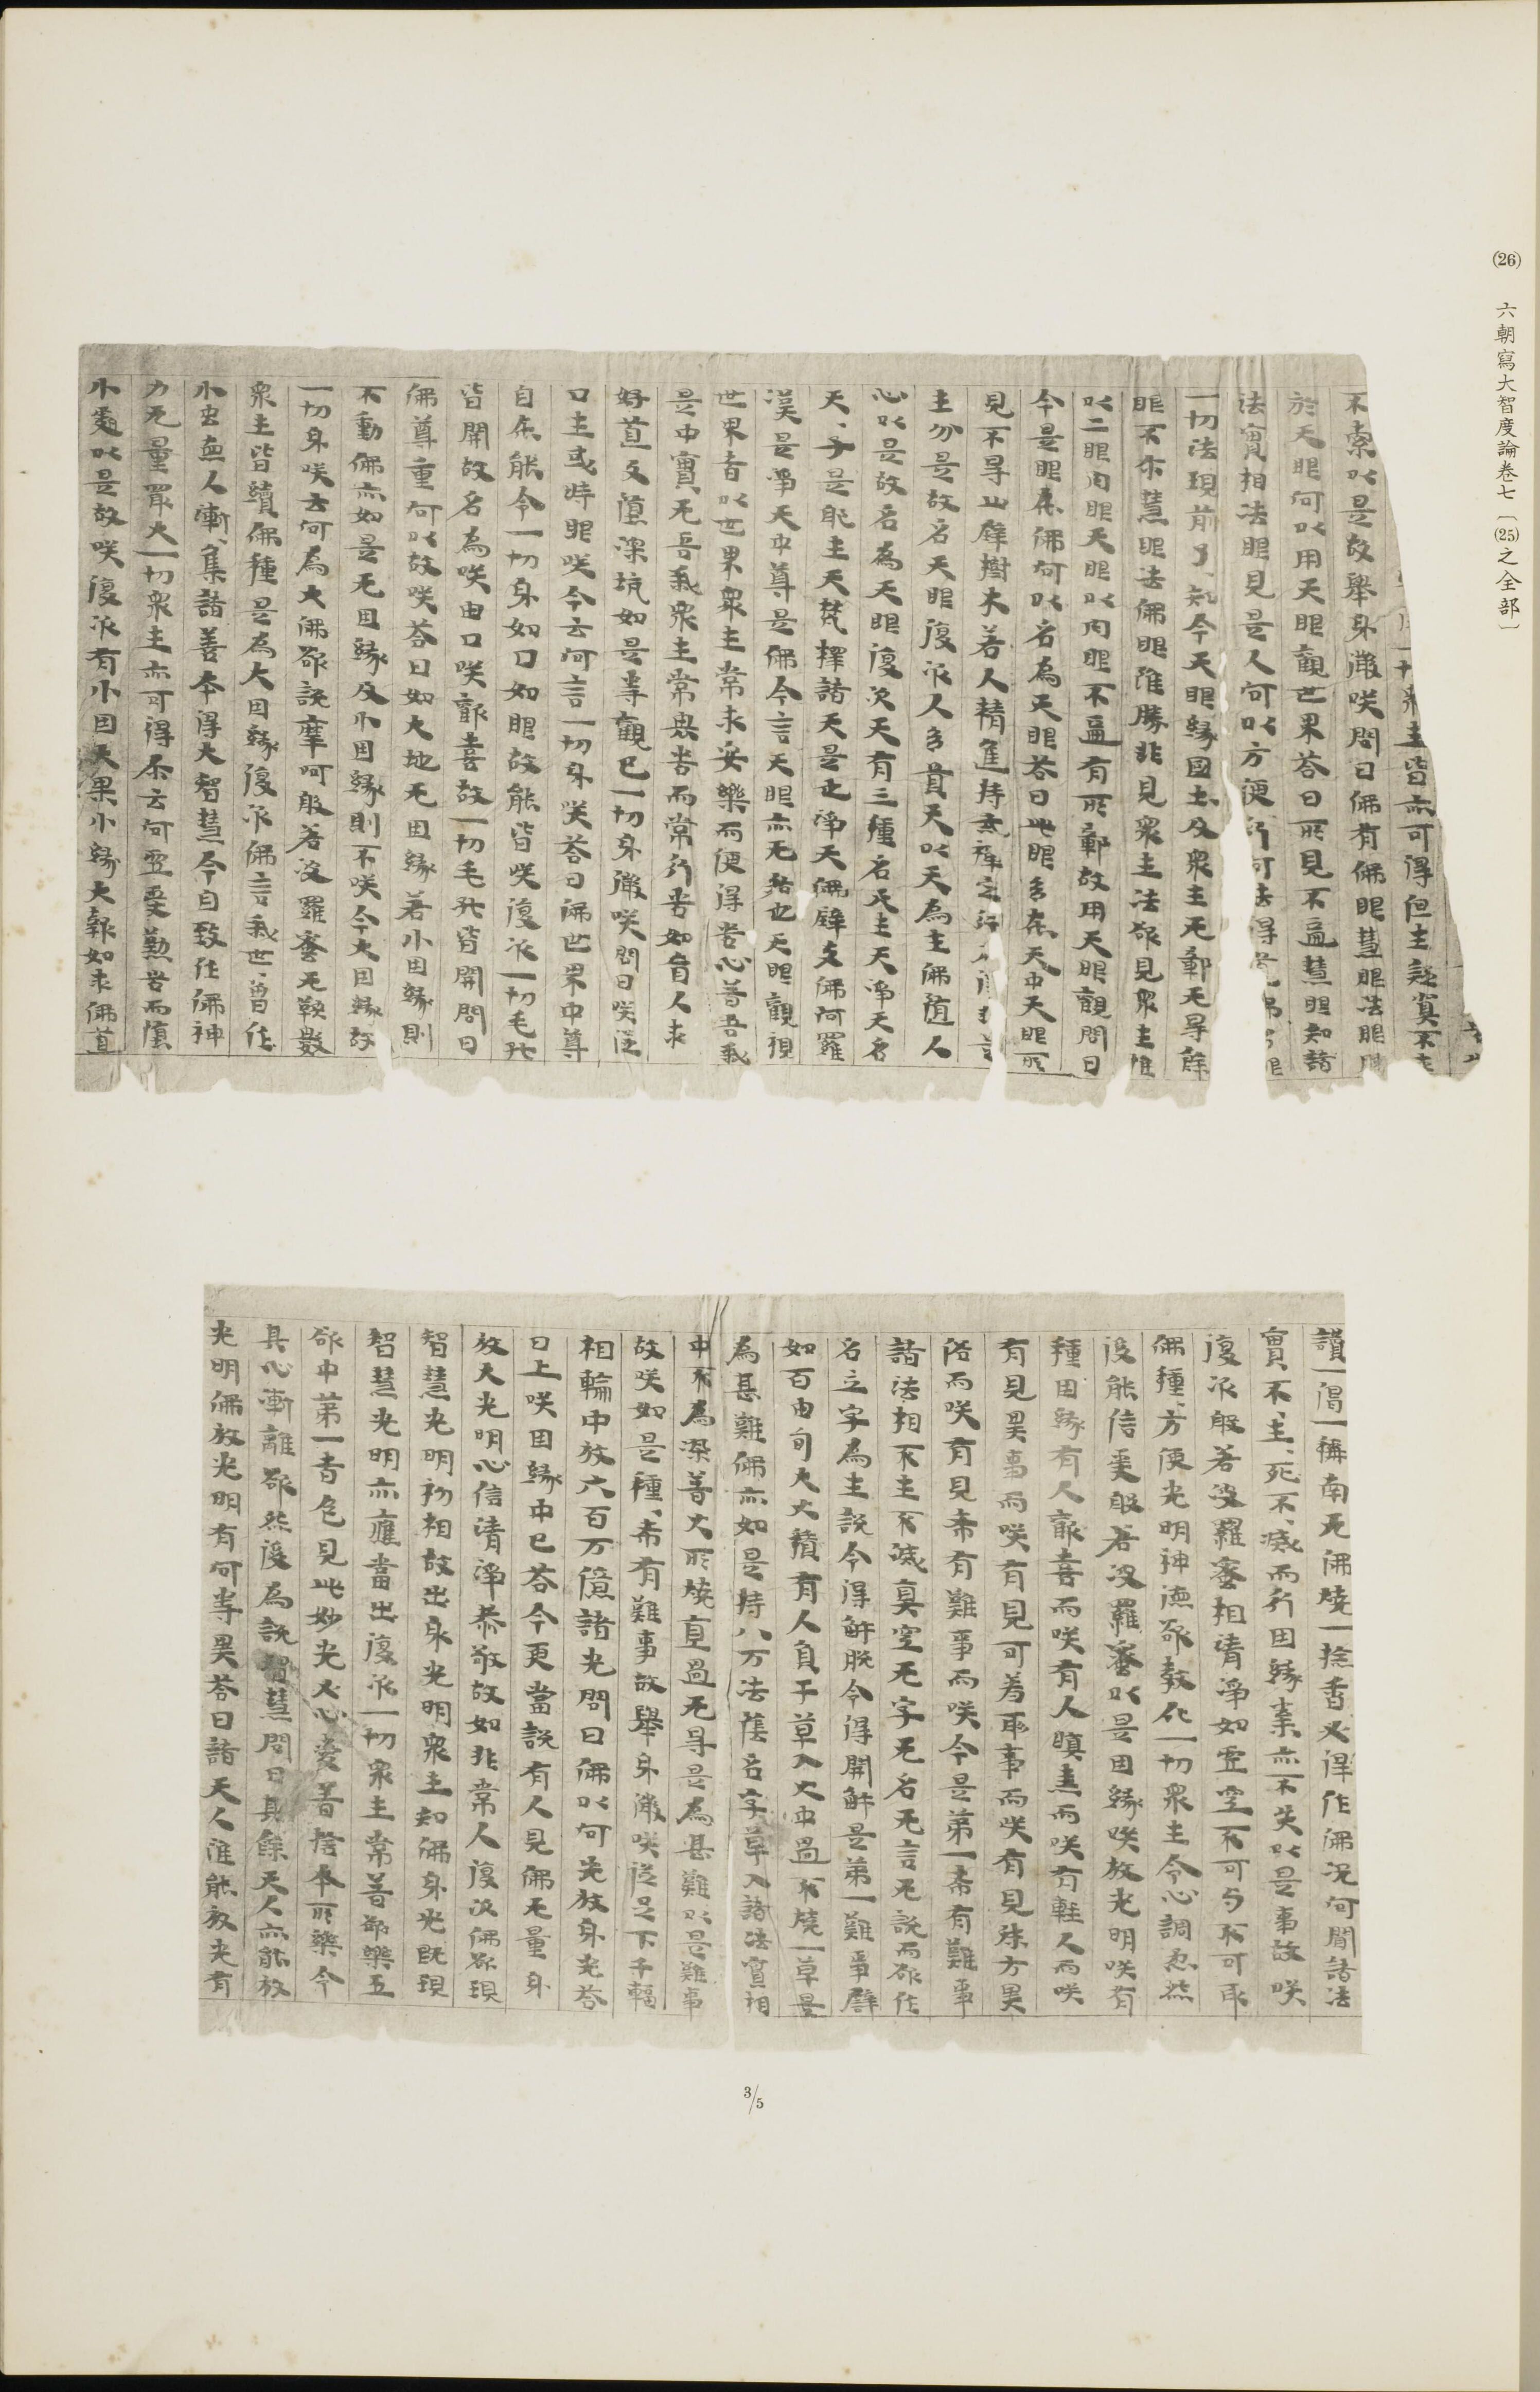 (26) 六朝寫大智度論卷七〔(25)之全部〕
一切衆生皆亦可得但生疑冥不
不索以是故舉身微咲問曰佛有佛眼慧眼法眼勝
於天眼何以用天眼觀世界答曰所見不遍慧眼知諸
法實相法眼見是人何以方便行何法得道佛名眼
一切法現前了〻知今天眼縁囯土及衆生无鄣无㝵餘
眼不尒慧眼法佛眼雖勝非見衆生法欲見衆生惟
以二眼肉眼天眼以肉眼不遍有所鄣故用天眼觀問曰
今是眼在佛何以名為天眼答曰此眼多在天中天眼所
見不㝵山壁樹木若人精進持禪定行
生分是故名天眼復次人多貴天以天為主佛随人
心以是故名為天眼復次天有三種名天生天淨天名
天〻子是𦒿生天梵擇諸天是也淨天佛辟支佛阿羅
漢是淨天中尊是佛今言天眼亦无咎也天眼觀視
世界者以世界衆生常求安樂而便得苦心著吾我
是中實无吾我衆生常㽵苦而常行苦如盲人求
好道反墮深坑如是等觀已一切身微咲問曰咲従
口生或時眼咲今云何言一切身咲答曰佛世界中尊
自在能令一切身如口如眼故能皆咲復次一切毛孔
皆開故名為咲由口咲歡喜故一切毛孔皆開問曰
佛尊重何以故咲答曰如大地无因縁若小因縁則
不動佛亦如是无因縁及小因縁則不咲今大因縁故
一切身咲云何為大佛欲說摩呵般若波羅蜜无鞅數
衆生皆續佛種是為大因縁復次佛言我世〻曾作
小虫𢙣人漸〻集諸善本得大智慧今自致作佛神
力无量㝡大一切衆生亦可得尒云何空受懃苦而墮
小處以是故咲復次有小因大果小縁大報如求佛道
讃一偈一稱南无佛燒一捻香必得作佛况何聞諸法
實不〻生〻死不〻滅而行因縁業亦不失以是事故咲
復次般若波羅蜜相清淨如虛空不可與不可取
佛種〻方便光明神徳欲教化一切衆生令心調忍然
後能信受般若波羅蜜以是因縁咲放光明咲有
種因縁有人歡喜而咲有人瞋恚而咲有輕人而咲
有見異事而咲有見可羞耻事而咲有見殊方異
俗而咲有見希有難事而咲今是第一希有難事
諸法相不生不滅真空无字无名无言无說而欲作
名立字為生說令得解脫令得開解是第一難事譬
如百由旬大火積有人負干草入火中過不燒一草是
為甚難佛亦如是持八万法蔟名字草入諸法實相
中不為染著火所燒直過无㝵是為甚難以是難事
故咲如是種〻希有難事故舉身微咲従足下千輻
相輪中放六百万億諸光問曰佛以何先放身光答
曰上咲因縁中已答今更當說有人見佛无量身
放大光明心信清淨恭敬故如非常人復次佛欲現
智慧光明初相故出身光明衆生知佛身光既現
智慧光明亦應當出復次一切衆生常著欲樂五
欲中第一者色見此妙光必心愛著捨本所樂令
其心漸離欲然後為說智慧問曰其餘天人亦能放
光明佛放光明有何等異答曰諸天人雖能放光有
3/5